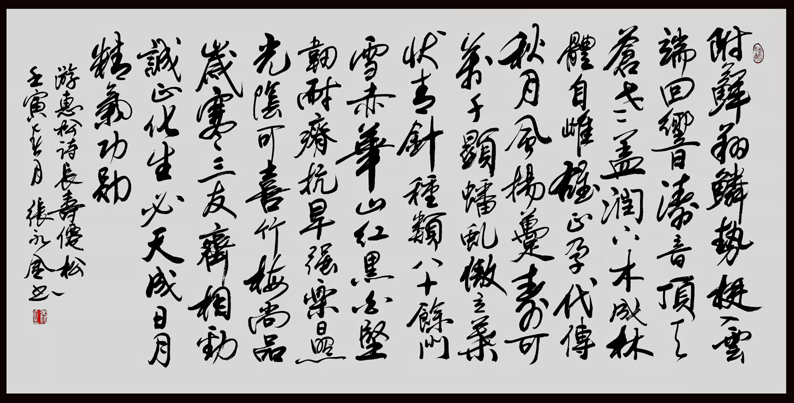 附鮮翔鱗勢挺雲
端回響濤音頂天
蒼老蓋潤八木成林
體自雌雄正孕代傳
秋月風揚蔓壽可
萬千顯蟠虬傲立葉
狀青針種類八十餘
雪赤華山紅黑白堅
韌耐瘠抗旱强
光陰可喜竹梅尚品
歲寒三友齊相勁
誠正化生必天成日月
精氣功勛
游惠松詩長壽優松
壬寅年春月張永書